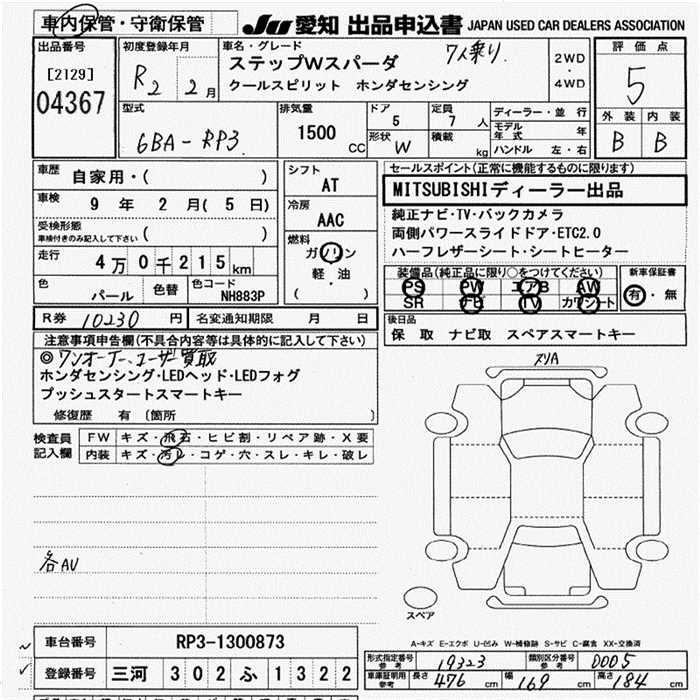 車内保管・守衛保管 JU 愛知 出品申込書 JAPAN USED CAR DEALERS ASSOCIATION
出品番号 [2129] 04367
初度登録年月 R2 2月
車名・グレード 7人乗り
ステップWスパーダ
クールスピリット ホンダセンシング
2WD・4WD
評価点 5
外装 内装
B B
型式 6BA-RP3
排気量 1500 CC
ドア 5 定員 7人
形状 W 積載 kg
ディーラー・並行
モデル年式 年
ハンドル 左・右
車歴 自家用・( )
車検 9年 2月(5日)
受検形態 ( )
車検付きのみ記入して下さい
走行 4万0千215km
色 パール 色替 色コード NH883P
シフト AT
冷房 AAC
燃料 ガソリン
軽・油
( )
セールスポイント(正常に機能するものに限ります)
MITSUBISHIディーラー出品
純正ナビ・TV・バックカメラ
両側パワースライドドア・ETC2.0
ハーフレザーシート・シートヒーター
装備品(純正品に限り○をつけてください)
PS PW エアB AW
SR ナビ TV カワシート
新車保証書
有・無
R券 10230円 名変通知期限 月 日
後日品
保 取 ナビ取 スペアスマートキー
注意事項申告欄(不具合内容等は具体的に記入して下さい)
◎ワンオーナーユーザー買取
ホンダセンシング・LEDヘッド・LEDフォグ
プッシュスタートスマートキー
修復歴 有 〔箇所 〕
検査員記入欄
FW キズ・飛石・ヒビ割・リペア跡・X要
内装 キズ・汚レ・コゲ・穴・スレ・キレ・破レ
各AU
スペア
A-キズ E-エクボ U-凹み W-補修跡 S-サビ C-腐食 XX-交換済
車台番号 RP3-1300873
登録番号 三河 302 ふ 1322
形式指定番号 参考 19323 類別区分番号 参考 0005
車庫証明用参考 長さ 476cm 幅 169cm 高さ 184cm